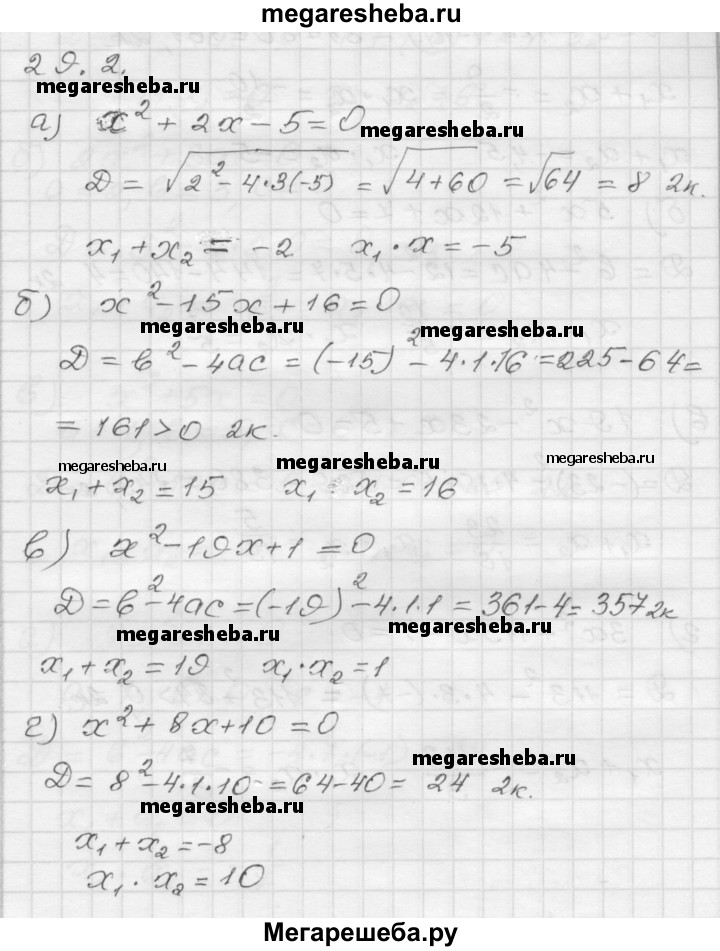 megaresheba.ru
29.2.
megaresheba.ru
а) x² + 2x - 5 = 0
megaresheba.ru
Д = √(2² - 4·3(-5)) = √(4+60) = √64 = 8 2к.
x₁ + x₂ = -2 x₁ · x = -5
б) x² - 15x + 16 = 0
megaresheba.ru
megaresheba.ru
Д = b² - 4ac = (-15)² - 4·1·16 = 225 - 64 =
= 161 > 0 2к.
megaresheba.ru
megaresheba.ru
megaresheba.ru
x₁ + x₂ = 15 x₁ · x₂ = 16
в) x² - 19x + 1 = 0
Д = b² - 4ac = (-19)² - 4·1·1 = 361 - 4 = 357 2к
megaresheba.ru
megaresheba.ru
x₁ + x₂ = 19 x₁ · x₂ = 1
г) x² + 8x + 10 = 0
megaresheba.ru
Д = 8² - 4·1·10 = 64 - 40 = 24 2к.
megaresheba.ru
x₁ + x₂ = -8
x₁ · x₂ = 10
Мегарешеба.ру